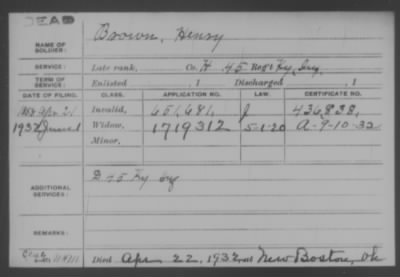 DEAD
NAME OF SOLDIER: Brown, Henry
SERVICE: Late rank, Co. H 45 Reg't Ky. Inf.
TERM OF SERVICE: Enlisted , 1 Discharged , 1
DATE OF FILING. CLASS. APPLICATION NO. LAW. CERTIFICATE NO.
1888 Apr 21 Invalid, 651,681, J 436838,
1932 June 1 Widow, 1719312 5-1-20 A-9-10-32
Minor,
ADDITIONAL SERVICES: D 45 Ky Inf
REMARKS:
Died Apr 22, 1932, at New Boston, Oh